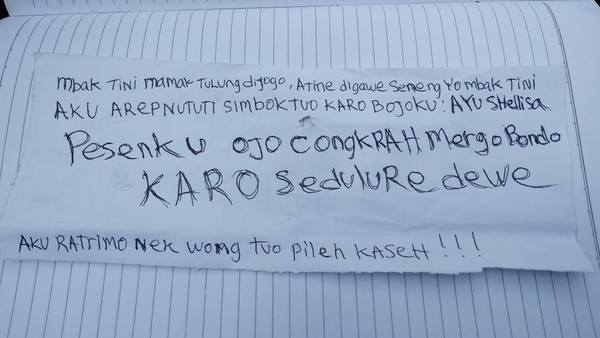 mbak Tini mamak Tulung dijogo, Atine digawe Seneng Yo mbak Tini
AKU AREP NUTUTI SIMBOK TUO KARO BOJOKU : AYU SHellisa
Pesenku ojo CongKRAH Mergo Bondo
KARO Sedulure dewe
AKU RATRIMO NEK WONG TUO pileh KASEH !!!